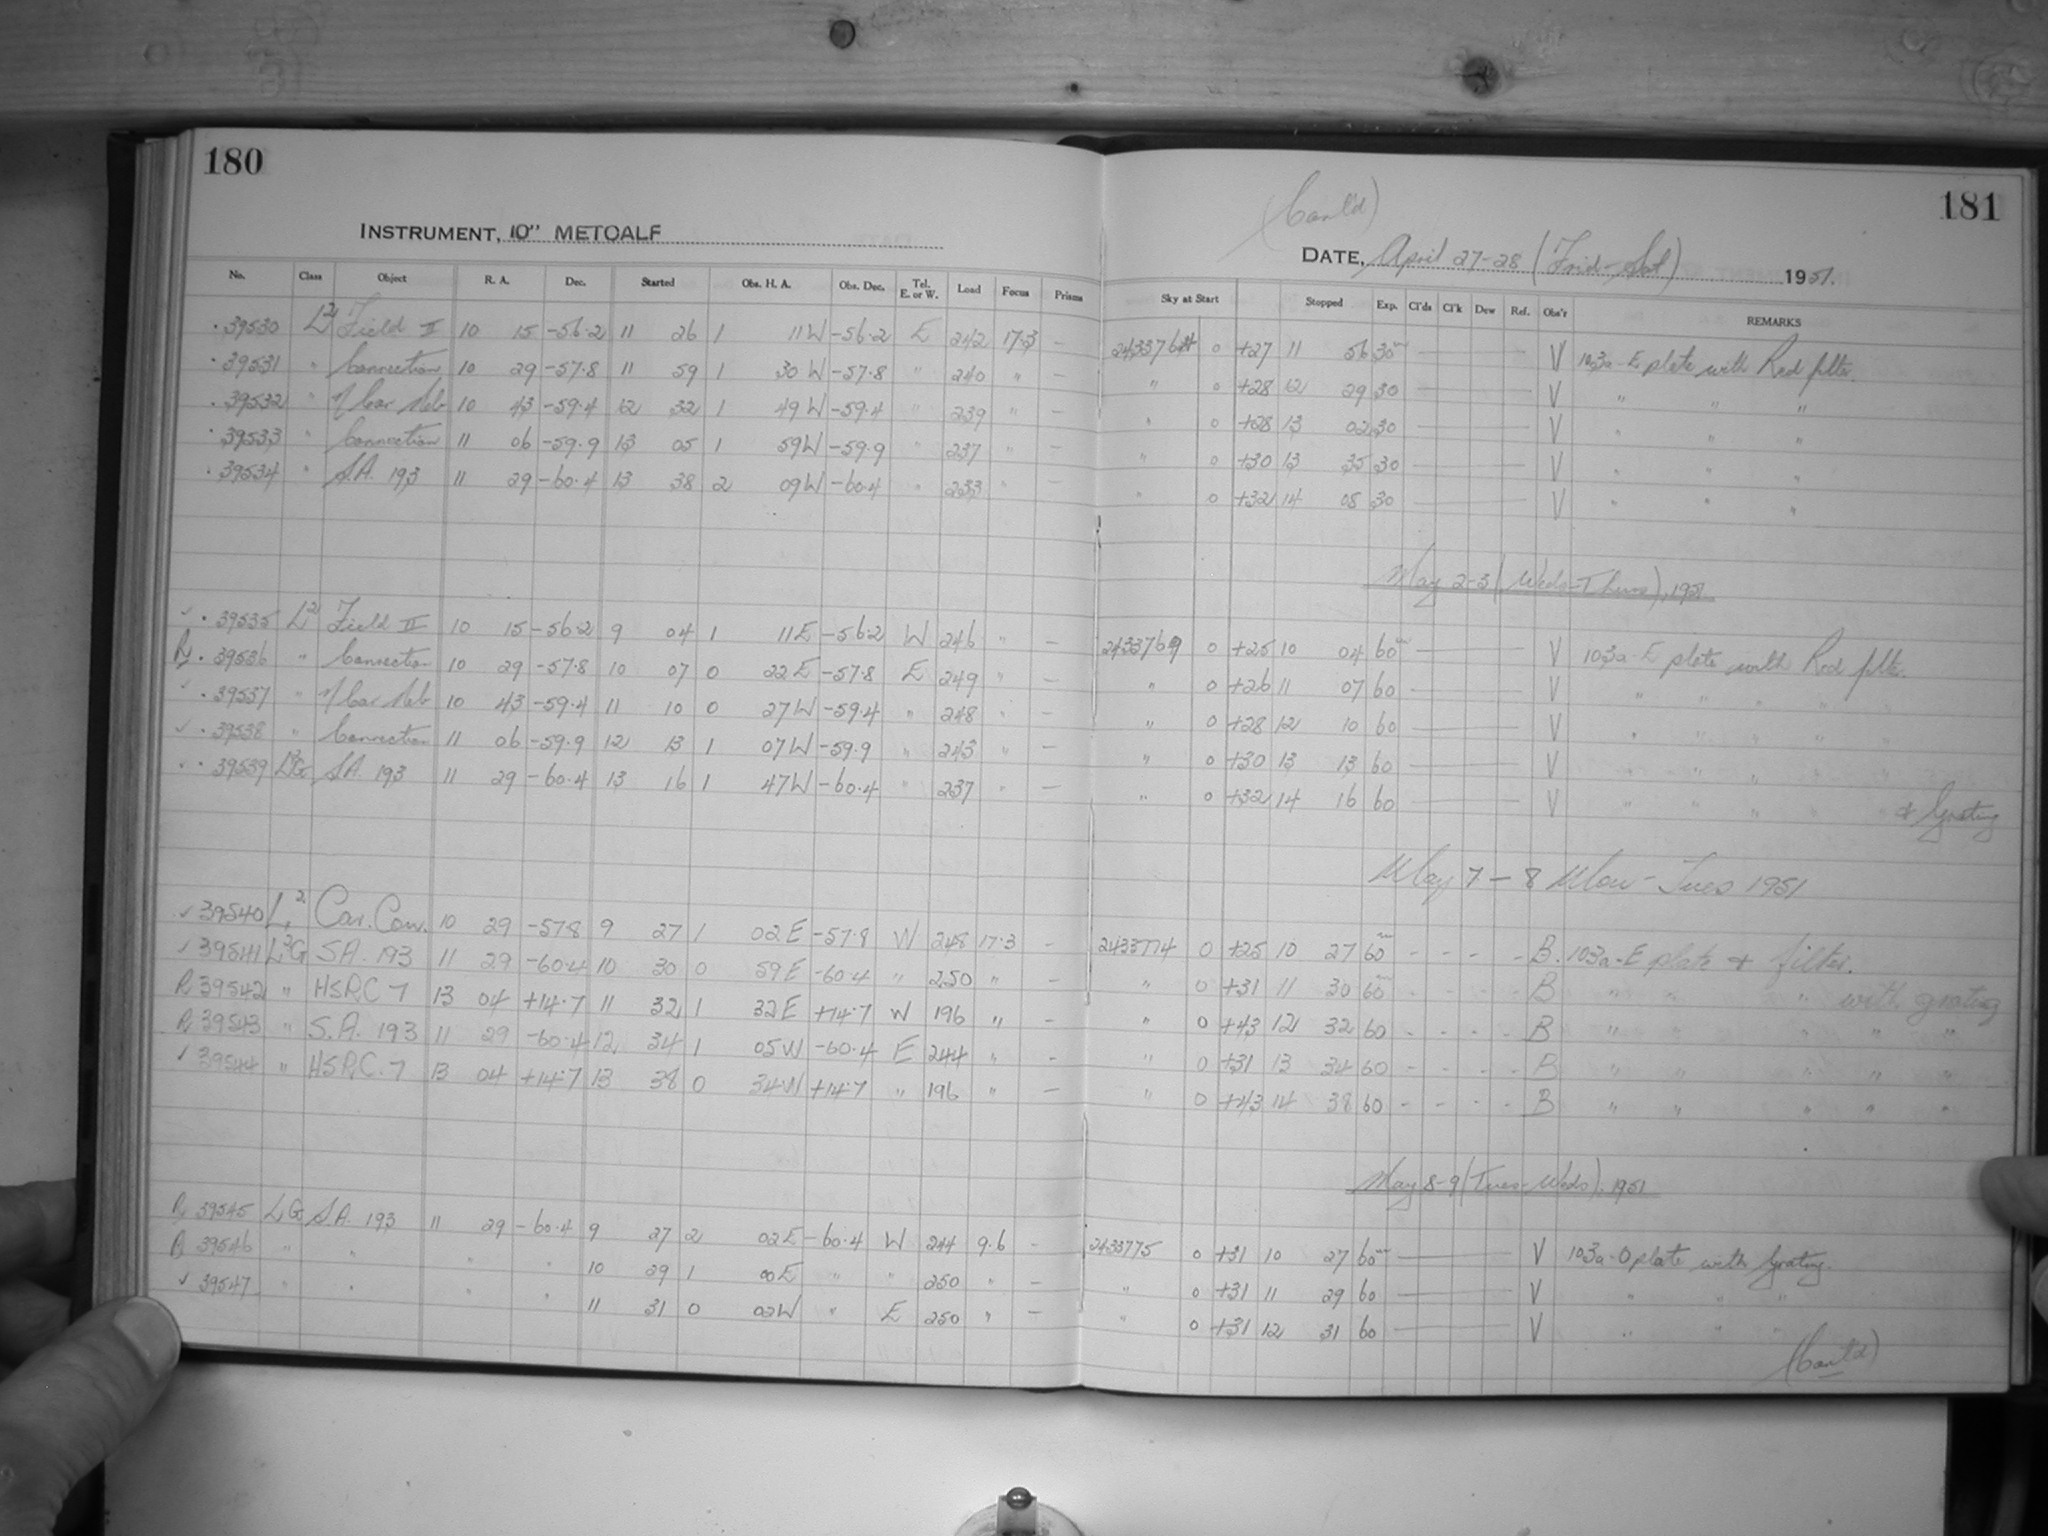 180
INSTRUMENT, 10" METCALF
No. Class Object R. A. Dec. Started Obs. H. A. Obs. Dec. Tel. E. or W. Load Focus Prisms
39530 L2 Field II 10 15 -56.2 11 26 1 11W -56.2 E 242 17.3 -
39531 " Connection 10 29 -57.8 11 59 1 30W -57.8 " 240 " -
39532 " η Car Neb 10 43 -59.4 12 32 1 49W -59.4 " 239 " -
39533 " Connection 11 06 -59.9 13 05 1 59W -59.9 " 237 " -
39534 " S.A. 193 11 29 -60.4 13 38 2 09W -60.4 " 233 " -
✓ 39535 L2 Field II 10 15 -56.2 9 04 1 11E -56.2 W 246 " -
39536 " Connection 10 29 -57.8 10 07 0 22E -57.8 E 249 " -
39537 " η Car Neb 10 43 -59.4 11 10 0 27W -59.4 " 248 " -
✓ 39538 " Connection 11 06 -59.9 12 13 1 07W -59.9 " 243 " -
39539 L2G S.A. 193 11 29 -60.4 13 16 1 47W -60.4 " 237 " -
✓ 39540 L2 Car. Con. 10 29 -57.8 9 27 1 02E -57.8 W 248 17.3 -
✓ 39541 L2G SA. 193 11 29 -60.4 10 30 0 59E -60.4 " 250 " -
39542 " HSPC 7 13 04 +14.7 11 32 1 32E +14.7 W 196 " -
39543 " S.A. 193 11 29 -60.4 12 34 1 05W -60.4 E 244 " -
✓ 39544 " HSPC. 7 13 04 +14.7 13 38 0 34W +14.7 " 196 " -
39545 LG S.A. 193 11 29 -60.4 9 27 2 02E -60.4 W 244 9.6 -
39546 " " " " 10 29 1 00E " " 250 " -
✓ 39547 " " " " 11 31 0 02W " E 250 " -
(Cont'd)
181
DATE, April 27-28 (Frid-Sat) 1951.
Sky at Start Stopped Exp. Cl'ds Cl'k Dew Ref. Obs'r REMARKS
2433764 0 +27 11 56 30m V 103a-E plate with Red filter.
" 0 +28 12 29 30 V " " "
" 0 +28 13 02 30 V " " "
" 0 +30 13 35 30 V " " "
" 0 +32 14 08 30 V " " "
May 2-3 (Weds-Thurs), 1951
2433769 0 +25 10 04 60m V 103a-E plate with Red filter.
" 0 +26 11 07 60 V " " " " "
" 0 +28 12 10 60 V " " " " "
" 0 +30 13 13 60 V " " " " "
" 0 +32 14 16 60 V " " " " & Grating
May 7-8 Mon-Tues 1951
2433774 0 +25 10 27 60m - - - - B. 103a-E plate & filter.
" 0 +31 11 30 60m - - - - B " " " with grating
" 0 +43 12 32 60 - - - - B " " " " "
" 0 +31 13 34 60 - - - - B " " " " "
" 0 +43 14 38 60 - - - - B " " " " "
May 8-9 (Tues-Weds), 1951
2433775 0 +31 10 27 60m V 103a-O plate with Grating.
" 0 +31 11 29 60 V " " "
" 0 +31 12 31 60 V " " "
(Cont'd)